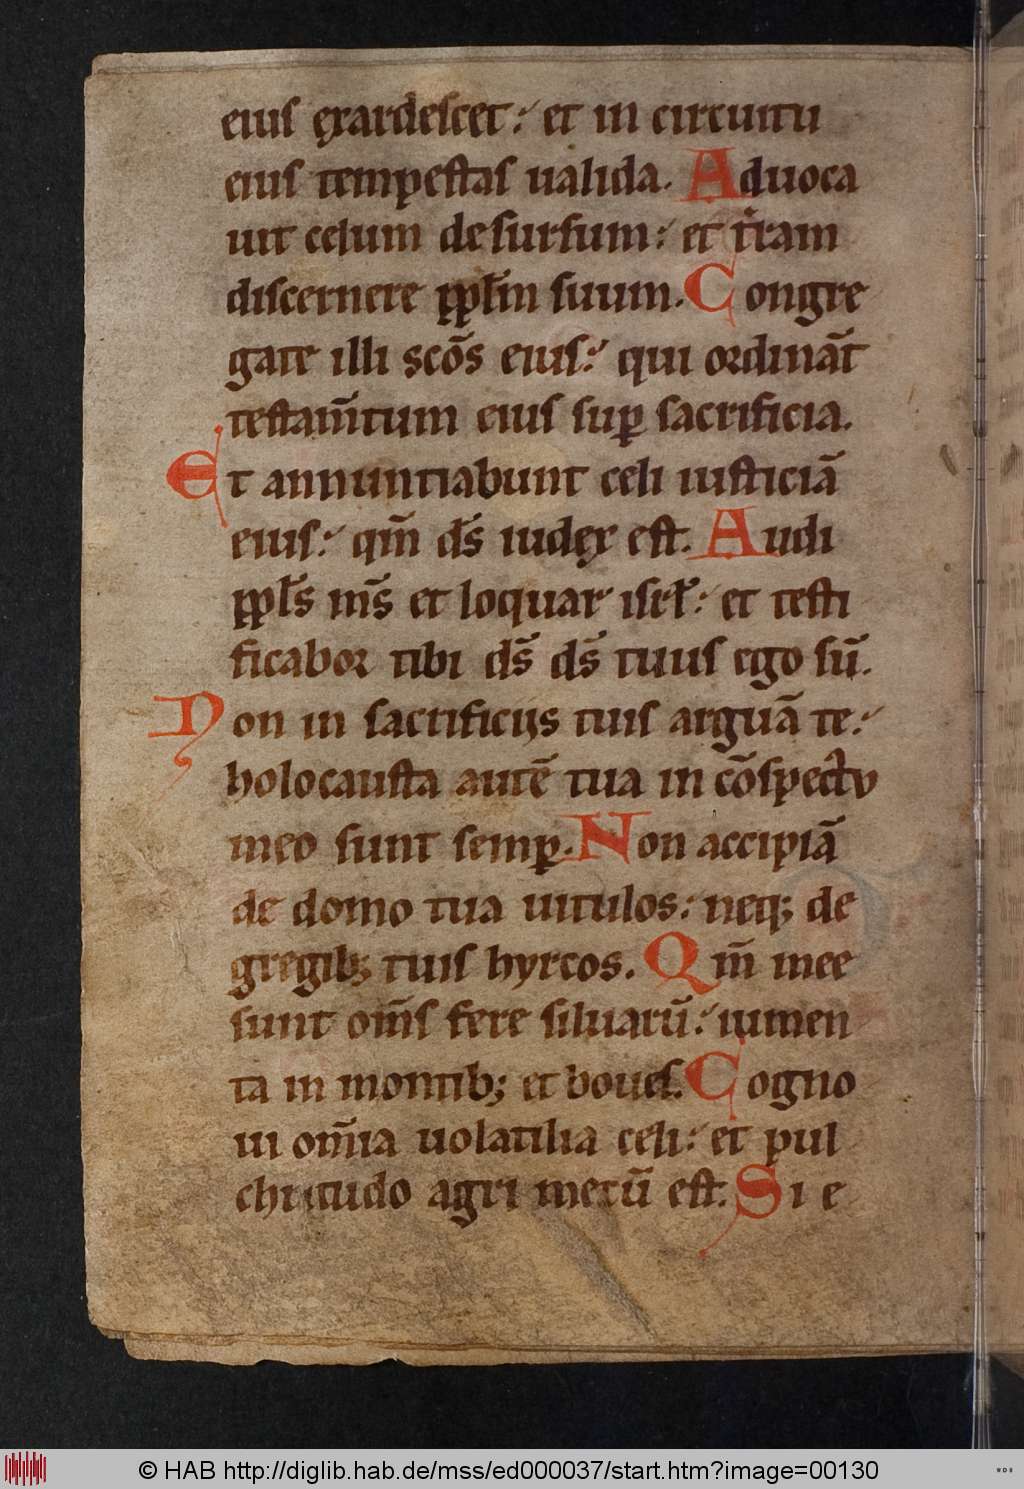 eius exardescet: et in circuitu
eius tempestas ualida. Aduoca
uit celum desursum: et t̄ram
discernere ppl̄m suum. Congre
gate illi scōs eius: qui ordinān̄t
testam̄tum eius sup̲ sacrificia.
Et annuntiabunt celi iusticiā
eius: qm̄ ds̄ iudex est. Audi
ppl̄s ms̄ et loquar isrl̄: et testi
ficabor tibi ds̄ ds̄ tuus ego sū.
Non in sacrificijs tuis arguā te:
holocausta autē tua in cōspectu
meo sunt semp̲. Non accipiā
de domo tua uitulos: neq; de
gregib; tuis hyrcos. Qm̄ mee
sunt om̄s fere siluarū: iumen
ta in montib; et boues. Cogno
ui om̄ia uolatilia celi: et pul
chritudo agri mecū est. Si e
© HAB http://diglib.hab.de/mss/ed000037/start.htm?image=00130